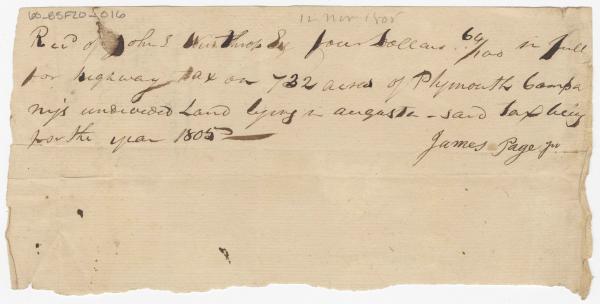 60-B5F20-016
12 Nov 1805
Recd of John S Winthrop Esq four Dollars 64/100 in full
for highway tax on 732 acres of Plymouth Compa
nys undivided Land lying in augusta - said tax being
for the year 1805 —
James Page Jr